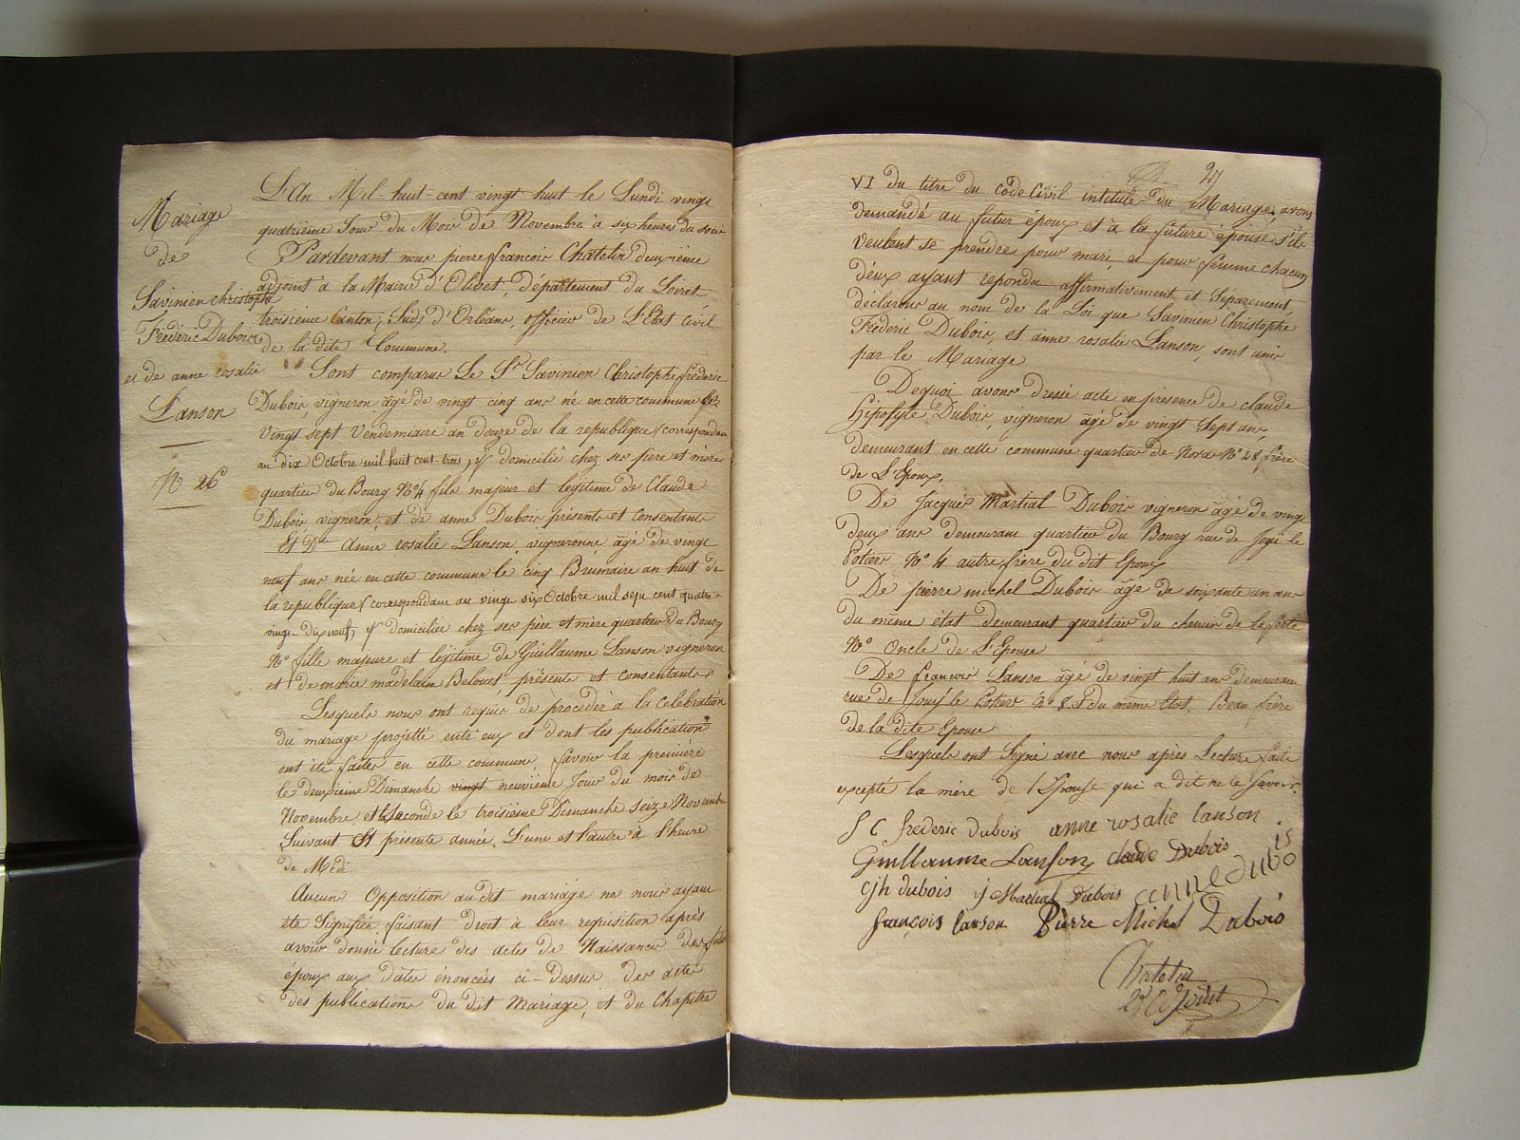 Mariage
de
Savinien christophe
Fréderic Dubois
et de anne rosalie
Lanson
N° 26
L'An Mil-huit-cent vingt huit le Lundi vingt
quatrième Jour du Mois de Novembre à six heures du soir
Pardevant nous pierre françois Chatelin deuxième
adjoint à la Mairie d'Olivet, Département du Loiret
troisieme Canton, Sud, d'Orléans, officier de L'Etat Civil
de la dite Commune.
Sont comparus Le Sr Savinien Christophe frederic
Dubois, vigneron âgé de vingt cinq ans né en cette commune le
Vingt sept Vendemiaire an douze de la republique (correspondan
au dix Octobre mil huit cent trois, y domicilié chez ses pere et mère
quartier du Bourg N° 4 fils majeur et legitime de Claude
Dubois, vigneron, et de anne Dubois présents et Consentants
Et Dlle Anne rosalie Lanson, vigneronne âgé de vingt
neuf ans née en cette commune le cinq Brumaire an huit de
la republique (correspondant au vingt six Octobre mil sept cent quatre-
vingt-dix neuf, y domiciliée chez ses père et mère quartier du Bourg
N° fille majeure et legitime de Guillaume Lanson vigneron
et de marie madelaine Belouet, présents et consentants
Lesquels nous ont requis de procéder à la Celebration
du mariage projetté entr'eux et dont les publications
ont été faites en cette commune, Savoir la première
le deuxieme Dimanche vingt neuvième Jour du mois de
Novembre et la seconde le troisième Dimanche seize Novembre
Suivant et présente année. L'une et l'autre à l'heure
de Midi
Aucune Opposition au dit mariage ne nous ayant
été Signifiée, faisant droit à leur requisition après
avoir donné lecture des actes de Naissance des futurs
époux aux Dates énoncées ci-Dessus des actes
des publications du dit mariage, et du Chapitre
27
VI du titre du Code Civil intitulé du Mariage. avons
demandé au futur époux et à la future épouse s'ils
Veulent se prendre pour mari et pour femme chacun
deux ayant repondu affirmativement et Séparement,
déclarons au nom de la Loi que Savinien Christophe
Fréderic Dubois, et anne rosalie Lanson, sont unis
par le Mariage
Dequoi avons dressé acte en presence de claude
hipolyte Dubois, vigneron âgé de vingt Sept ans,
demeurant en cette commune quartier de N° 28 frère
de L'Epoux,
De Jacques Martial Dubois vigneron âgé de vingt
deux ans demeurant quartier du Bourg rue de Jogé le
Potiers N° 4 autre frère du dit Epoux
De pierre michel Dubois âgé de soixante un ans
du même état demeurant quartier du chemin de la ferté
N° Oncle de L'Epouse
De françois Lanson âgé de vingt huit ans demeurant
rue de le Potier N° 8 du meme Etat, Beau frère
de la dite Epouse
Lesquels ont Signé avec nous après Lecture faite
excepté la mère de l'Epouse qui a dit ne le Savoir.
s c frederic dubois anne rosalie lanson.
Guillaume Lanson claude Dubois
cjh dubois j Martial Dubois anne dubois
françois lanson Pierre Michel Dubois
Chatelin
2e Adjoint